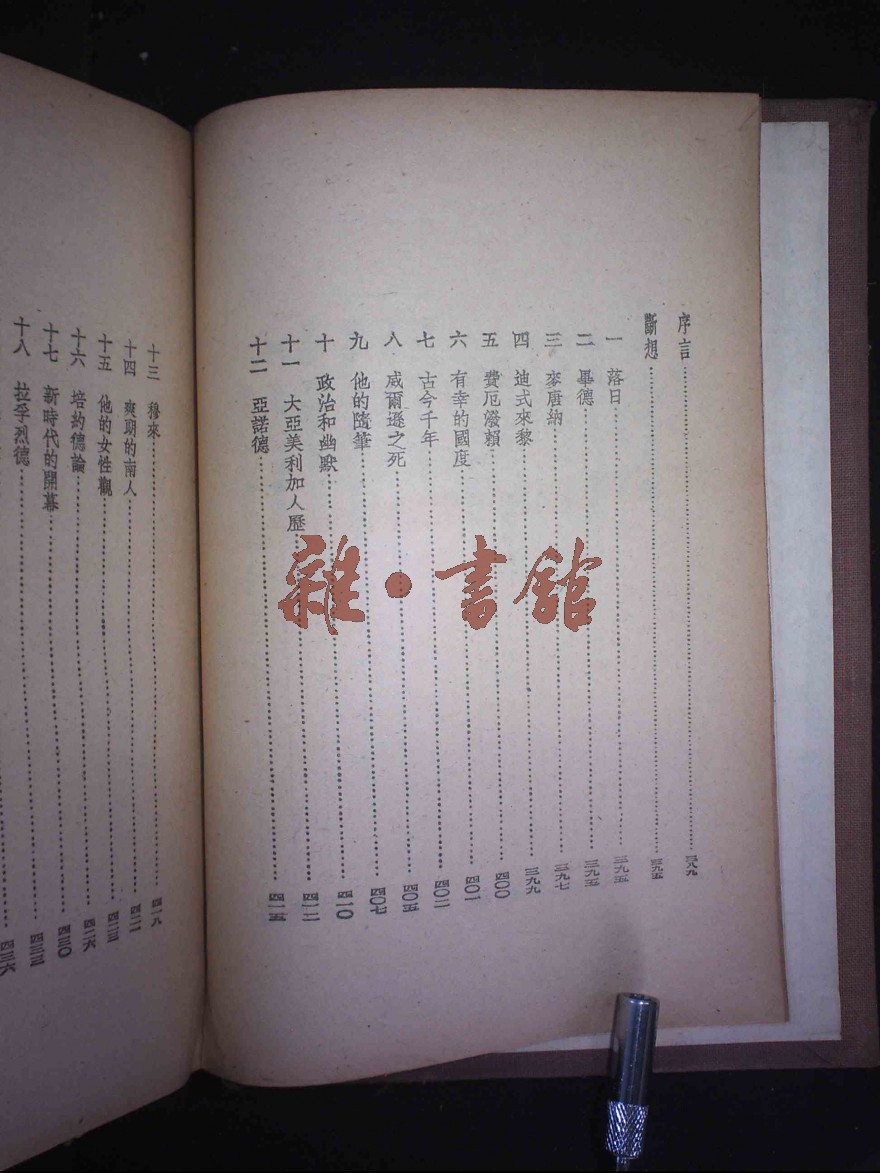 序言……三八九
斷想……三九五
一 落日……三九五
二 畢德……三九五
三 麥唐納……三九七
四 迪式來黎……三九九
五 費厄潑賴……四〇〇
六 有幸的國度……四〇一
七 古今千年……四〇二
八 威爾遜之死……四〇五
九 他的隨筆……四〇七
十 政治和幽默……四一〇
十一 大亞美利加人歷……四一二
十二 亞諾德……四一五
十三 穆來……四一九
十四 爽期的南人……四二二
十五 他的女性觀……四二三
十六 培約德論……四二六
十七 新時代的開幕……四三〇
十八 拉孚烈德……四三三
四三六
雜·書館